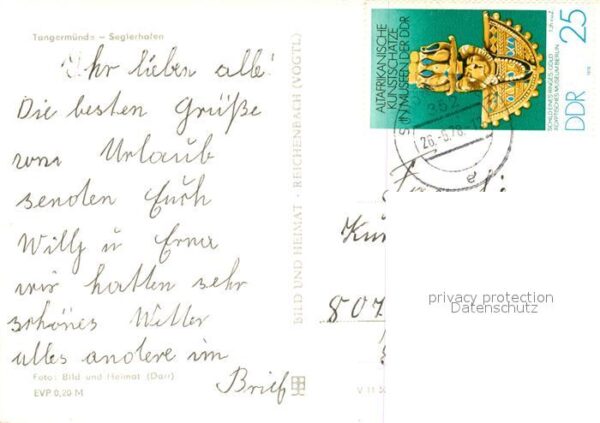 Tangermünde – Seglerhafen
Ihr lieben alle!
Die besten Grüße
vom Urlaub
senden Euch
Willy u Erna
wir hatten sehr
schönes Wetter
alles andere im
Brief
Foto: Bild und Heimat (Darr)
EVP 0,20 M
BILD UND HEIMAT · REICHENBACH (VOGTL)
V 11 50
ALTAFRIKANISCHE
KUNSTSCHÄTZE
IN MUSEEN DER DDR
SCHILD EINES RINGES · GOLD
ÄGYPTISCHES MUSEUM BERLIN
1978
DDR 25
352
26.-5.78
a
Kur
807
privacy protection
Datenschutz